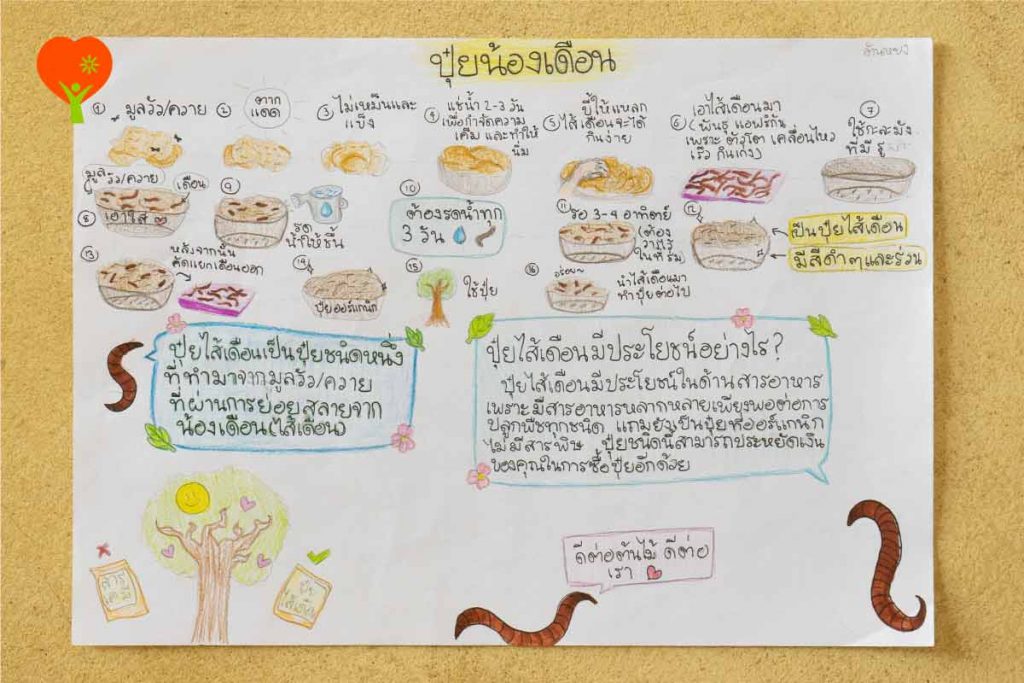 ปุ๋ยน้องเดือน
① มูลวัว/ควาย
② ตาก
แดด
③ ไม่เหม็นและ
แข็ง
④ แช่น้ำ 2-3 วัน
เพื่อกำจัดความ
เค็ม และทำให้
นิ่ม
⑤ ขยี้ให้แหลก
ไส้เดือนจะได้
กินง่าย
⑥ เอาไส้เดือนมา
(พันธุ์ แอฟริกัน
เพราะ ตัวโต เคลื่อนไหว
เร็ว กินเก่ง)
⑦
ใช้กะละมัง
ที่มี รู
มูลวัว/ควาย
เดือน
⑧ เอาใส่
⑨
รด
น้ำให้ชื้น
⑩
ต้องรดน้ำทุก
3 วัน
⑪ รอ 3-4 อาทิตย์
(ต้อง
วางไว้
ในที่ร่ม)
⑫
เป็นปุ๋ยไส้เดือน
มีสีดำๆและร่วน
⑬
หลังจากนั้น
คัดแยกเดือนออก
⑭
ปุ๋ยออร์แกนิก
⑮
ใช้ปุ๋ย
⑯
อร่อย~
นำไส้เดือนมา
ทำปุ๋ยต่อไป
ปุ๋ยไส้เดือนเป็นปุ๋ยชนิดหนึ่ง
ที่ทำมาจากมูลวัว/ควาย
ที่ผ่านการย่อยสลายจาก
น้องเดือน(ไส้เดือน)
ปุ๋ยไส้เดือนมีประโยชน์อย่างไร?
ปุ๋ยไส้เดือนมีประโยชน์ในด้านสารอาหาร
เพราะมีสารอาหารหลากหลายเพียงพอต่อการ
ปลูกพืชทุกชนิด แถมยังเป็นปุ๋ยที่ออร์แกนิก
ไม่มีสารพิษ ปุ๋ยชนิดนี้สามารถประหยัดเงิน
ของคุณในการซื้อปุ๋ยอีกด้วย
สาร
เคมี
ปุ๋ย
ไส้เดือน
ดีต่อต้นไม้ ดีต่อ
เรา